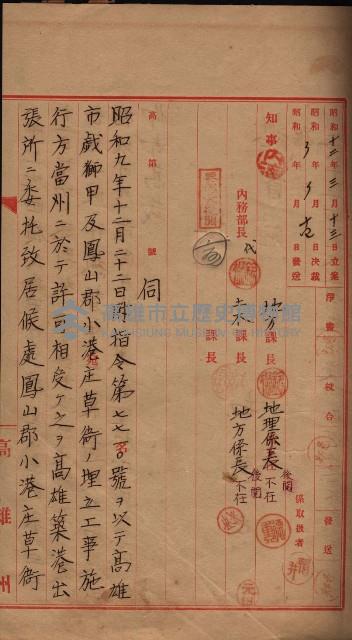 昭和十二年三月十三日立案
昭和 年 月 日決裁
昭和 年 月 日發送
淨書
校合
發送
知事
內務部長 代
地方課長
土木課長
地理係長 不在 後閱
地方係長 不在 後閱
係取扱者
高第 號
伺
昭和九年十二月二十二日附指令第七七 號ヲ以テ高雄
市戲獅甲及鳳山郡小港庄草衙ノ埋立工事施
行方當州ニ於テ許可相受ケ之ヲ高雄築港出
張所ニ委托致居候處鳳山郡小港庄草衙
高雄州
高雄市立歷史博物館
KAOHSIUNG MUSEUM OF HISTORY